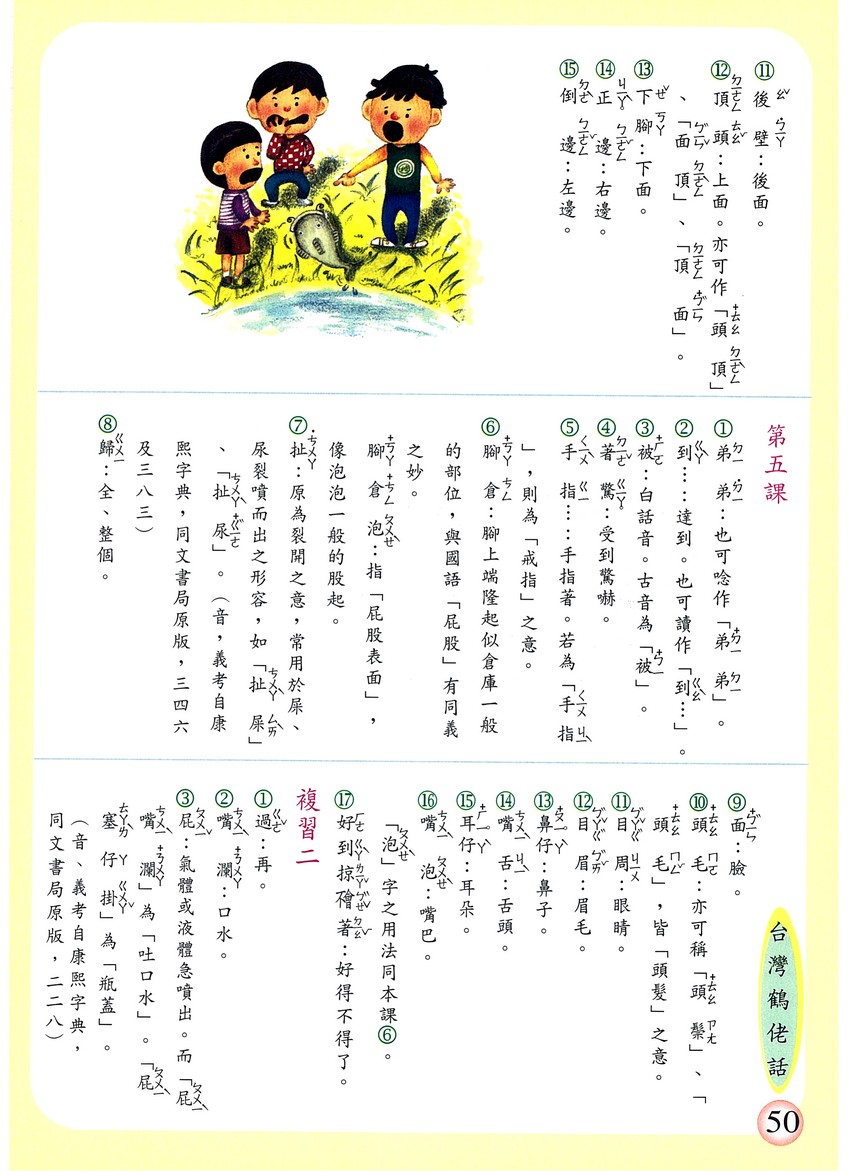 ⑪後壁：後面。
⑫頂頭：上面。亦可作「頭頂」
、「面頂」、「頂面」。
⑬下腳：下面。
⑭正邊：右邊。
⑮倒邊：左邊。
第五課
①弟弟：也可唸作「弟弟」。
②到…：達到。也可讀作「到…」。
③被：白話音。古音為「被」。
④著驚：受到驚嚇。
⑤手指…：手指著。若為「手指
」，則為「戒指」之意。
⑥腳倉：腳上端隆起似倉庫一般
的部位，與國語「屁股」有同義
之妙。
腳倉泡：指「屁股表面」，
像泡泡一般的股起。
⑦扯：原為裂開之意，常用於屎、
尿裂噴而出之形容，如「扯屎」
、「扯尿」。（音，義考自康
熙字典，同文書局原版，三四六
及三八三）
⑧歸：全、整個。
⑨面：臉。
⑩頭毛：亦可稱「頭鬃」、「
頭毛」，皆「頭髮」之意。
⑪目周：眼睛。
⑫目眉：眉毛。
⑬鼻仔：鼻子。
⑭嘴舌：舌頭。
⑮耳仔：耳朵。
⑯嘴泡：嘴巴。
「泡」字之用法同本課⑥。
⑰好到掠𣍐著：好得不得了。
複習二
①過：再。
②嘴瀾：口水。
③屁：氣體或液體急噴出。而「屁
嘴瀾」為「吐口水」。「屁
塞仔掛」為「瓶蓋」。
（音、義考自康熙字典，
同文書局原版，二二八）
台灣鶴佬話
50